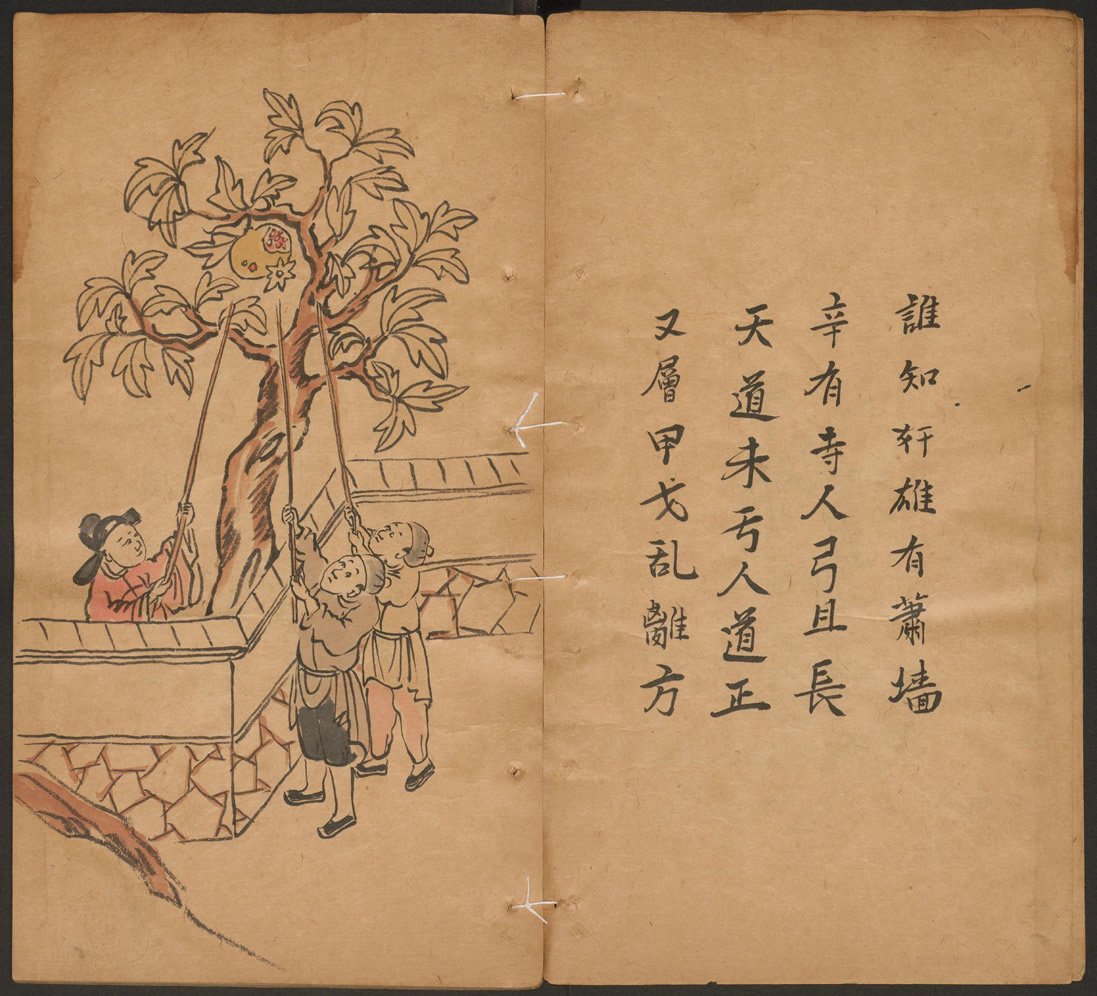 誰知軒雄有蕭墻
辛有寺人弓且長
天道未亏人道正
又層甲戈乱離方